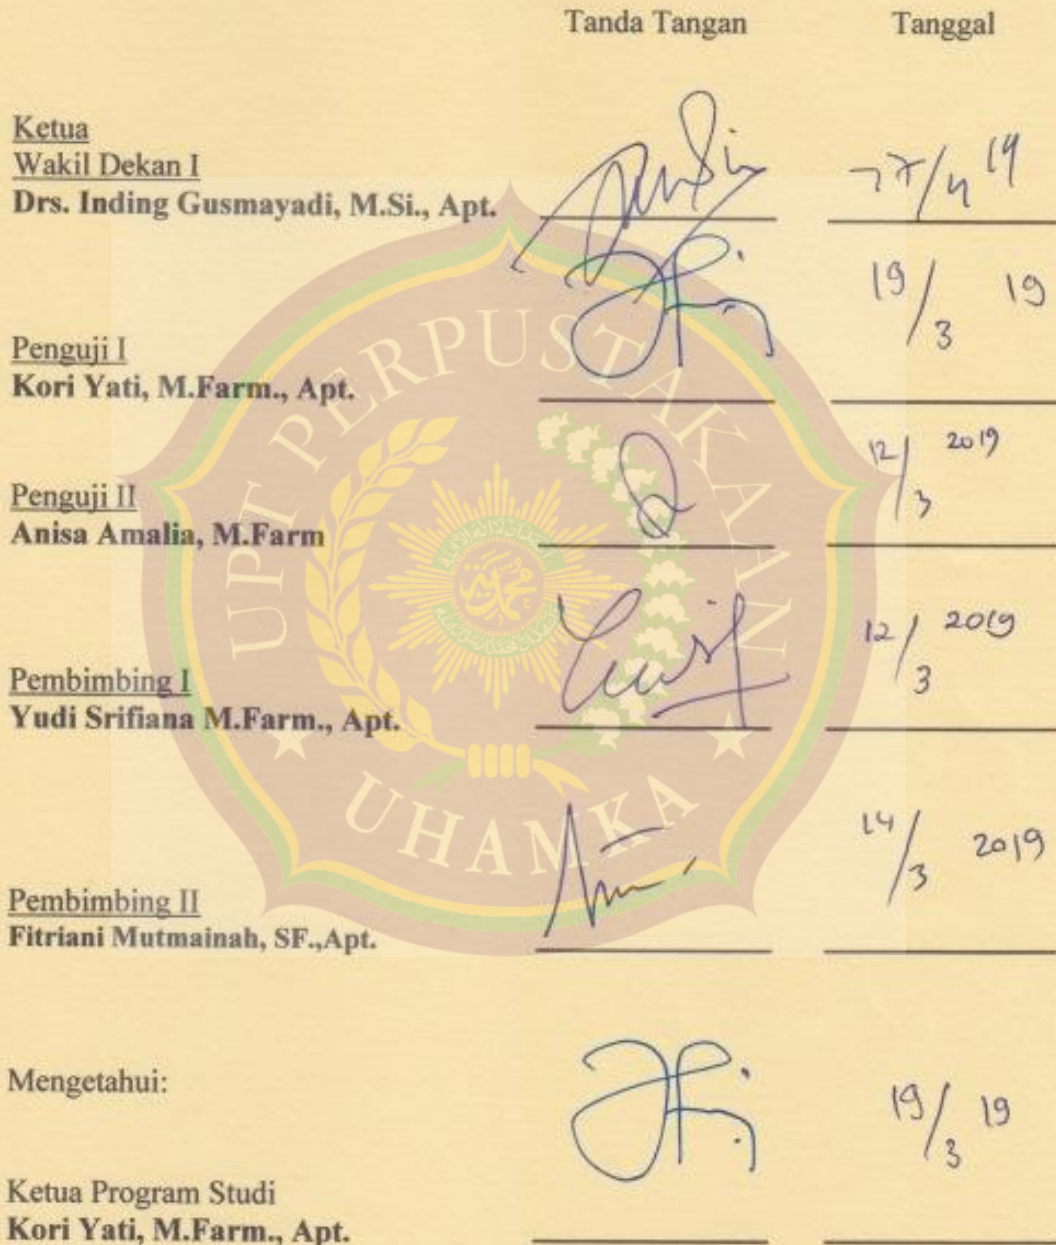 Tanda Tangan Tanggal
Ketua
Wakil Dekan I
Drs. Inding Gusmayadi, M.Si., Apt.
/4 19
19/3 19
Penguji I
Kori Yati, M.Farm., Apt.
12/3 2019
Penguji II
Anisa Amalia, M.Farm
12/3 2019
Pembimbing I
Yudi Srifiana M.Farm., Apt.
14/3 2019
Pembimbing II
Fitriani Mutmainah, SF.,Apt.
Mengetahui:
19/3 19
Ketua Program Studi
Kori Yati, M.Farm., Apt.
UPT PERPUSTAKAAN
UHAMKA